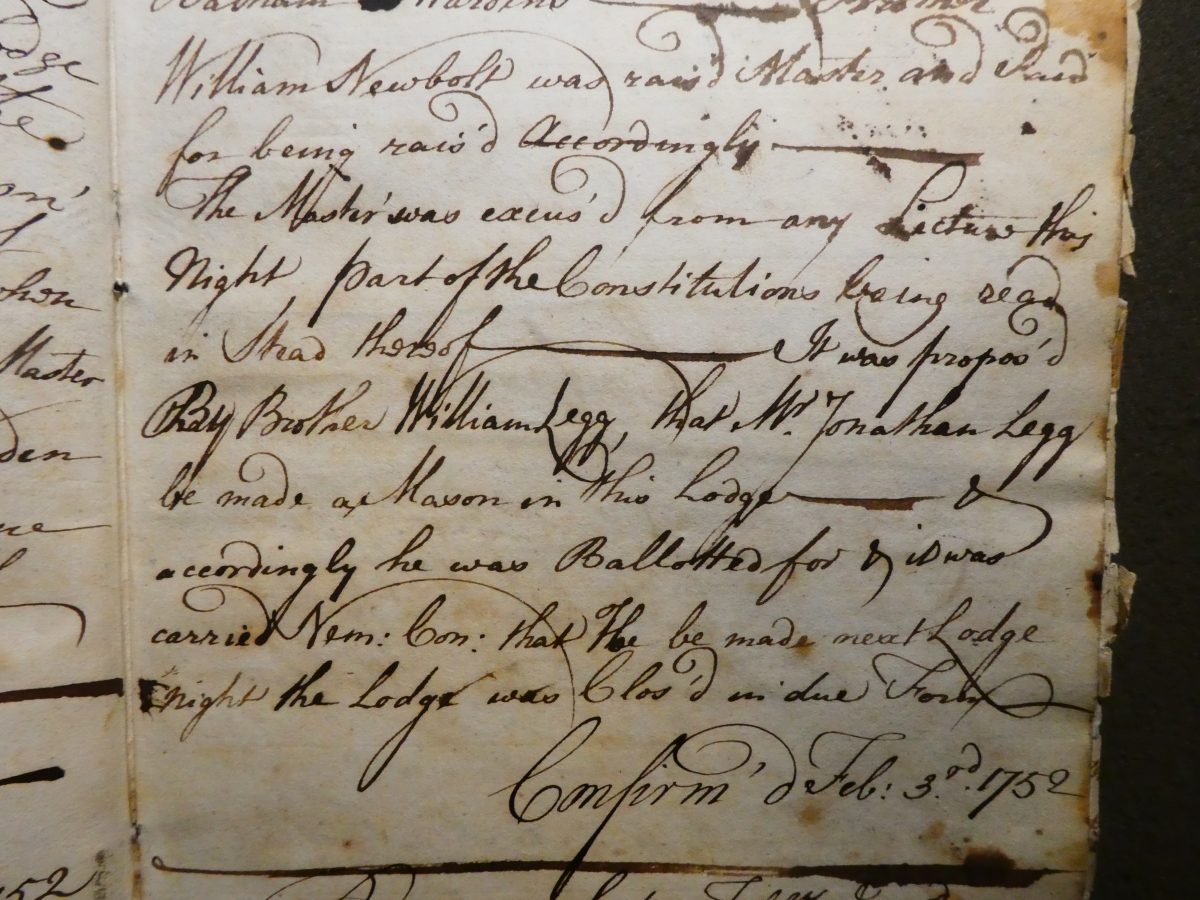 William Newbolt was rais'd Master and Paid
for being rais'd Accordingly
The Master was excus'd from any Lecture this
Night, part of the Constitutions being read
in Stead thereof It was propos'd
By Brother William Legg, that Mr. Jonathan Legg
be made a Mason in this Lodge &
accordingly he was Ballotted for & it was
carried Nem: Con: that He be made next Lodge
night the Lodge was Clos'd in due Form
Confirm'd Feb: 3.rd 1752